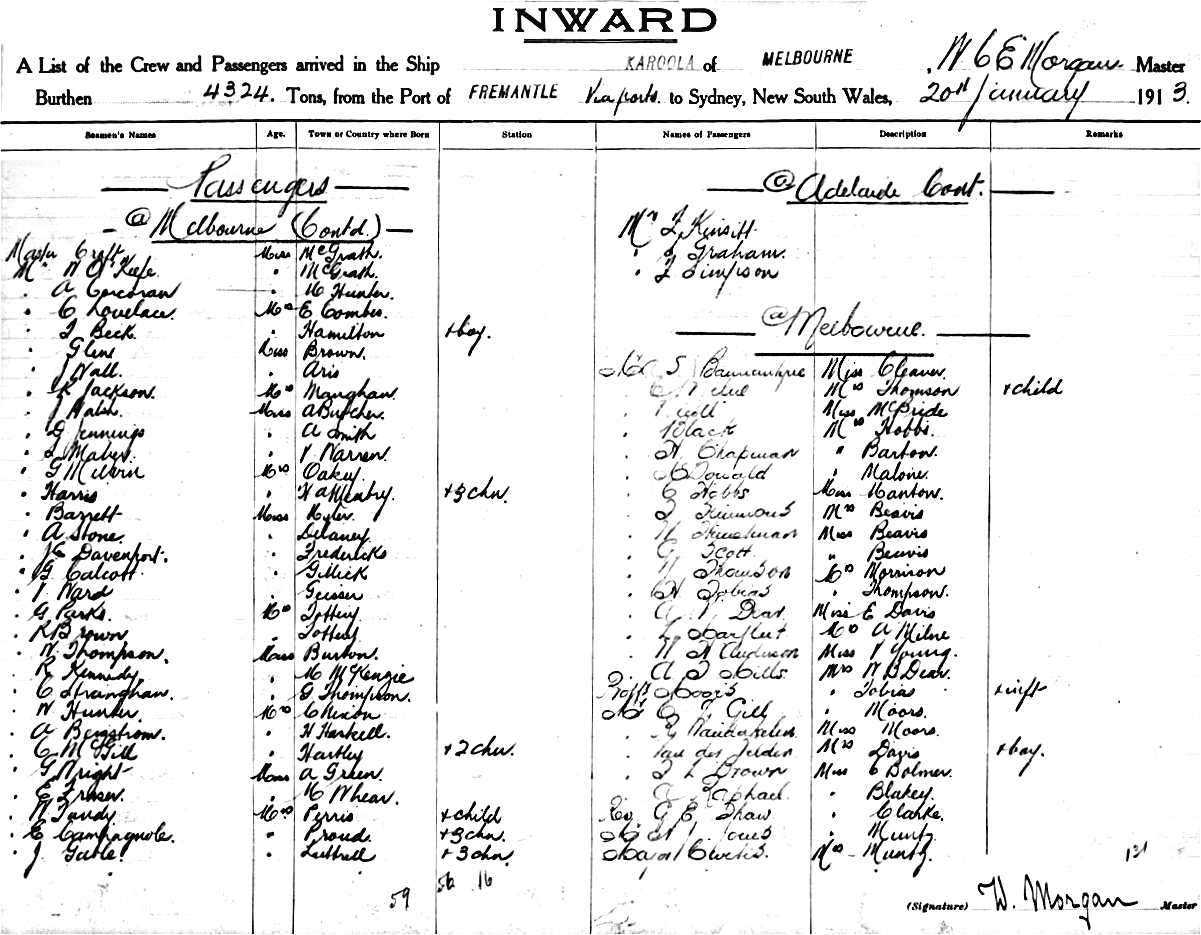 INWARD
A List of the Crew and Passengers arrived in the Ship KAROOLA of MELBOURNE W C E Morgan Master
Burthen 4324. Tons, from the Port of FREMANTLE Via ports to Sydney, New South Wales, 20th January 1913.
Seamen's Names Age. Town or Country where Born Station Names of Passengers Description Remarks
Passengers
@ Melbourne (Contd.)
Master Croft Miss McGrath.
Mr W O'Keefe " McGrath.
" A Corcoran " Hunter.
" C Lovelace. Mrs E Combes
" Beck. " Hamilton + boy.
" Glens Miss Brown.
" J Wall. " Aris
" R Jackson. Mrs Maughan.
" J Walsh. Miss A Butcher.
" G Jennings " A Smith
" Maher. " V Warren.
" G Mrs Oakey.
" Harris " + 3 chn.
" Barrett Miss
" A Stone. " Delaney.
" Davenport. " Fredericks
" G Calcott. " Gillick
" V Ward " Geisser
" G Parks. Mrs
" R Brown "
" W Thompson. Miss Burton.
" R Kennedy. " McKenzie
" C Strangham. " G Thompson.
" W Hunter. Mrs C Nixon
" A Bergstrom. " H Harkell
" C McGill " Hartley + 2 chn.
" G Wright Miss A Green.
" E Fraser. " Whear.
" W Tandy. Mrs Perris + child
" E Campagnole. " Proud. + 3 chn.
" J Gable. " Luttrell + 3 chn.
59 56 16
@ Adelaide Cont.
Mr F Kinsitt
" J Graham.
" F Simpson
@ Melbourne.
S. Miss Cleaver.
Mrs Thomson + child
Miss McBride
" Black Mrs Hobbs.
" H Chapman " Barton.
" " Malone.
" C Hobbs Miss Manton.
" Mrs Beavis
" Miss Beavis
" G Scott. " Beavis
" Thomson Mrs Morrison
" H Tobias " Thompson.
" A V Dear. Miss E Davis
" Mrs A Milne
" W H Anderson Miss V Young.
" A J Mills Mrs W B Dear.
Proff Moors " Tobias + inft
Mr C J Gill " Moors.
" Miss Moors.
" Van der Velden Mrs Davis + boy.
" J L Brown Miss C Bolmer.
" Raphael. " Blakey.
Rev. G E Shaw " Clarke.
Jones " Muntz.
Major Curtis. Mrs Muntz.
121
(Signature) W. Morgan Master